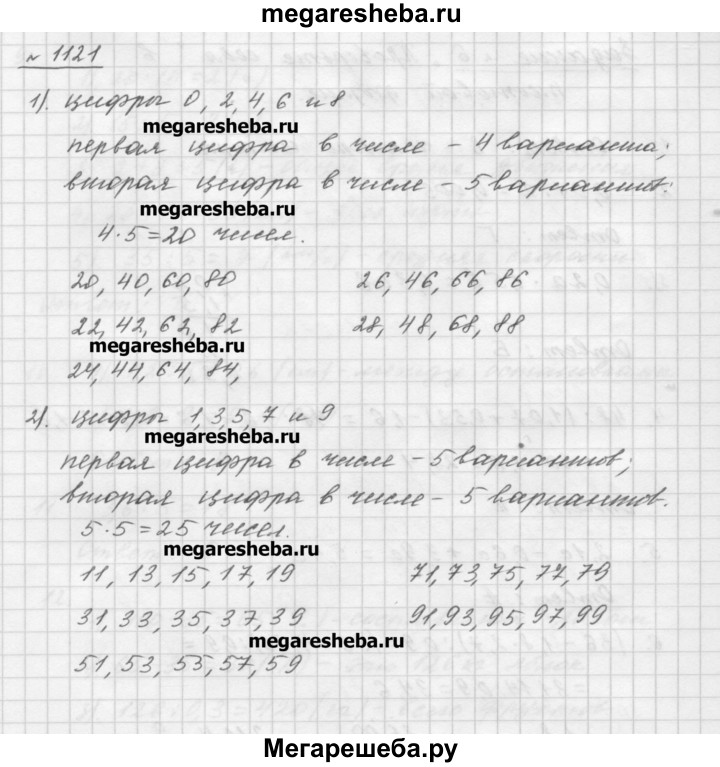 megaresheba.ru
№ 1121
1). цифры 0, 2, 4, 6 и 8
megaresheba.ru
первая цифра в числе – 4 варианта;
вторая цифра в числе – 5 вариантов:
megaresheba.ru
4·5=20 чисел.
20, 40, 60, 80 26, 46, 66, 86
22, 42, 62, 82 28, 48, 68, 88
megaresheba.ru
24, 44, 64, 84,
2). цифры 1, 3, 5, 7 и 9
megaresheba.ru
первая цифра в числе – 5 вариантов;
вторая цифра в числе – 5 вариантов.
5·5=25 чисел.
megaresheba.ru
11, 13, 15, 17, 19 71, 73, 75, 77, 79
31, 33, 35, 37, 39 91, 93, 95, 97, 99
megaresheba.ru
51, 53, 55, 57, 59
Мегарешеба.ру